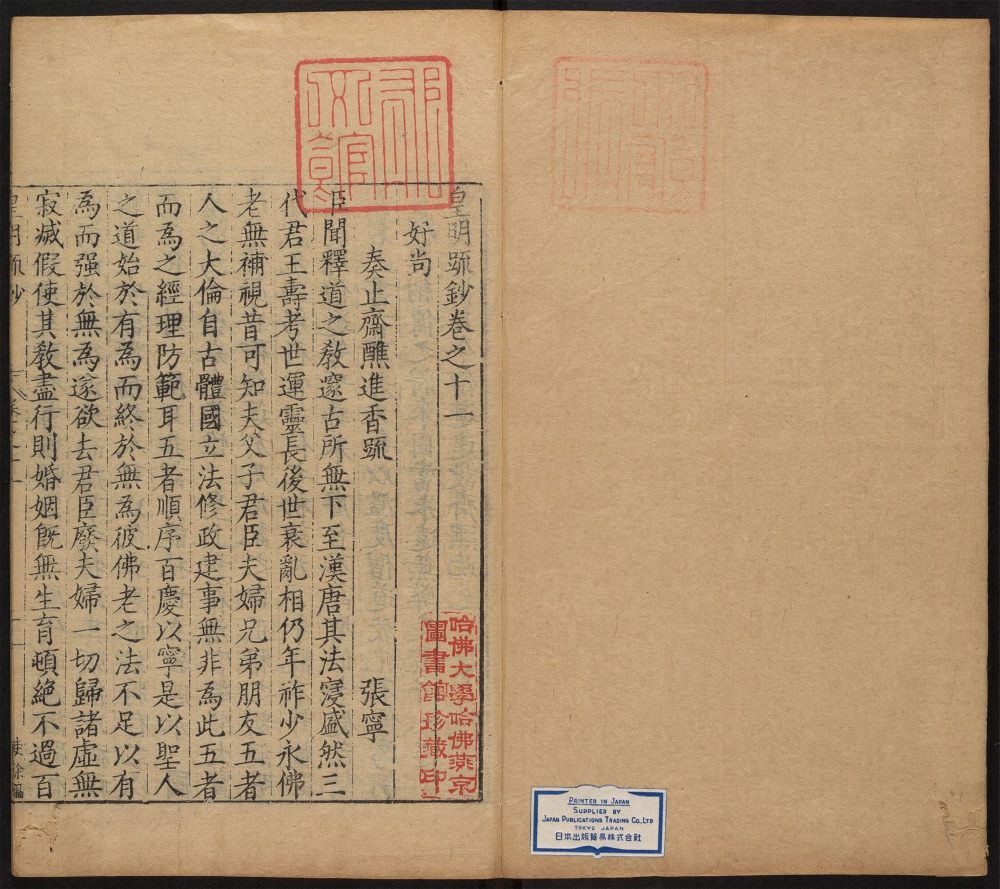 皇明䟽鈔卷之十一
好尚
奏止齋醮進香䟽 張寧
臣聞釋道之教邃古所無下至漢唐其法寖盛然三
代君王壽考世運靈長後世衰亂相仍年祚少永佛
老無補視昔可知夫父子君臣夫婦兄弟朋友五者
人之大倫自古體國立法修政建事無非為此五者
而為之經理防範耳五者順序百慶以寧是以聖人
之道始於有為而終於無為彼佛老之法不足以有
為而强於無為遂欲去君臣廢夫婦一切歸諸虛無
寂滅假使其教盡行則婚姻旣無生育頓絶不過百
皇明䟽鈔
哈佛大學哈佛燕京
圖書館珍藏印
PRINTED IN JAPAN
SUPPLIED BY
JAPAN PUBLICATIONS TRADING CO., LTD
TOKYO JAPAN
日本出版貿易株式会社